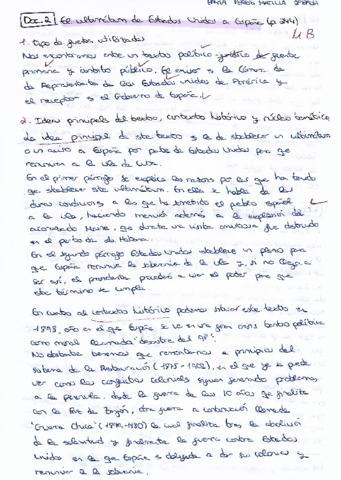 Doc. 2 El ultimátum de Estados Unidos a España (p 244)
MB
1. Tipo de fuentes utilizadas
Nos encontramos ante un texto político jurídico de fuente
primaria y ámbito público. El emisor es la Cámara
de Representantes de los Estados Unidos de América y
el receptor es el Gobierno de España.
2. Ideas principales del texto, contexto histórico y núcleo temático
La idea principal de este texto es la de establecer un ultimátum
o un aviso a España por parte de Estados Unidos para que
renuncie a la isla de Cuba.
En el primer párrafo se explica las razones por las que ha tenido
que establecer este ultimátum. En ella se habla de las
duras condiciones a las que ha sometido el pueblo español
a la isla, haciendo mención además a la explosión del
acorazado Maine, que durante una visita amistosa fue destruido
en el puerto de La Habana.
En el segundo párrafo Estados Unidos establece un plazo para
que España renuncie la soberanía de la isla y, si no llega a
ser así, el presidente procederá a usar el poder para que
este término se cumpla.
En cuanto al contexto histórico podemos situar este texto en
1898, año en el que España se ve en una gran crisis tanto política
como moral llamada "desastre del 98".
No obstante tenemos que remontarnos a principios del
sistema de la Restauración (1875-1902), en el que ya se puede
ver como las conquistas coloniales siguen generando problemas
a la península. desde la guerra de los 10 años que finaliza
con la Paz de Zanjón, otra guerra a continuación llamada
"Guerra Chica" (1879-1880) la cual finaliza tras la abolición
de la esclavitud y finalmente la guerra contra Estados
Unidos en la que España es obligada a dar sus colonias y
renunciar a la soberanía.